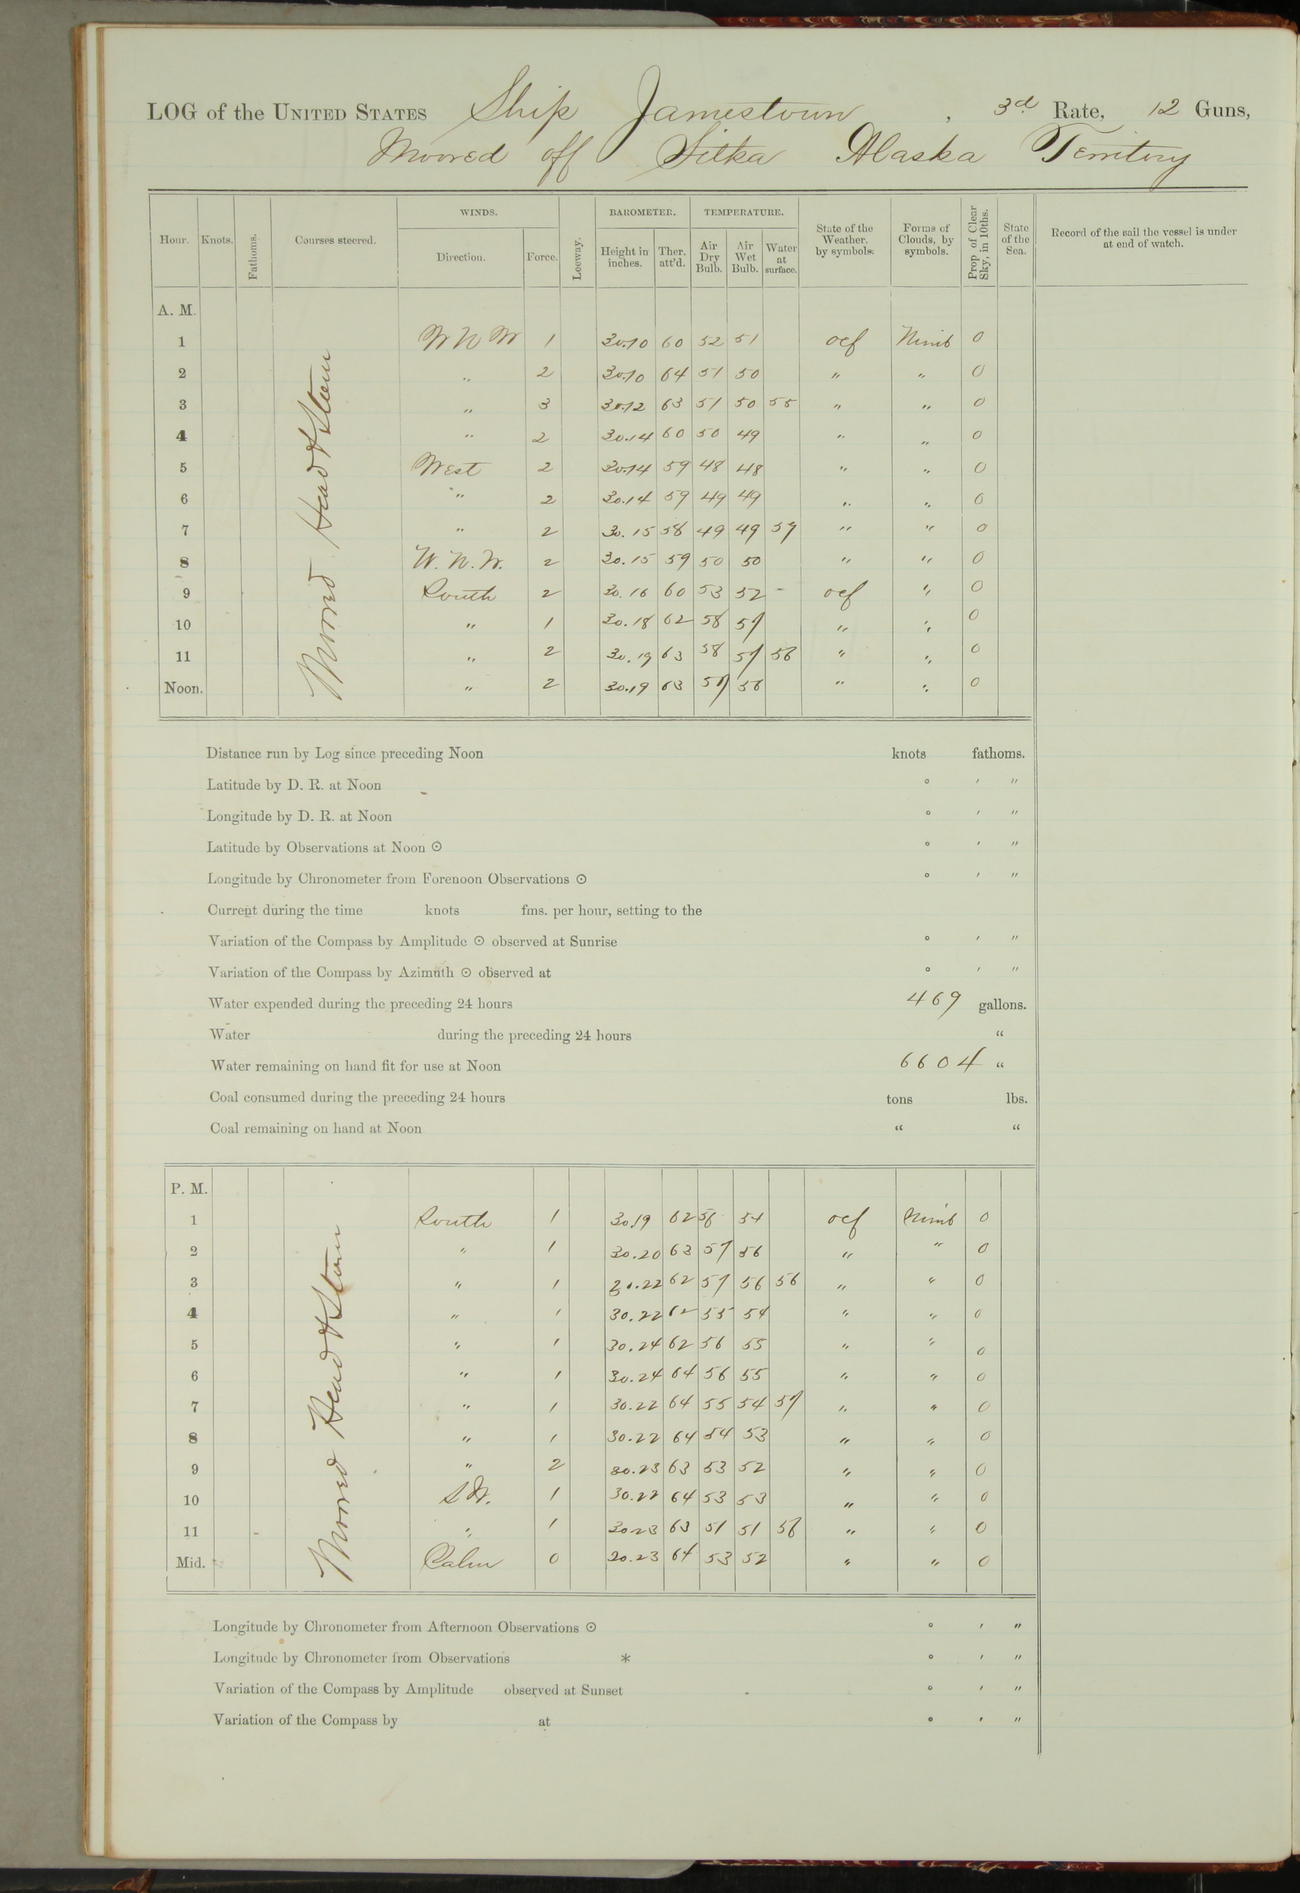 LOG of the UNITED STATES Ship Jamestown , 3d Rate, 12 Guns,
Moored off Sitka Alaska Territory
Hour. Knots. Fathoms. Courses steered. WINDS. Direction. Force. Leeway. BAROMETER. Height in inches. Ther. att'd. TEMPERATURE. Air Dry Bulb. Air Wet Bulb. Water at surface. State of the Weather, by symbols. Forms of Clouds, by symbols. Prop. of Clear Sky, in 10ths. State of the Sea. Record of the sail the vessel is under at end of watch.
A. M.
Moored Head & Stern
1 W N W 1 30.10 60 52 51 ocf Nimb 0
2 " 2 30.10 64 51 50 " " 0
3 " 3 30.12 63 51 50 55 " " 0
4 " 2 30.14 60 50 49 " " 0
5 West 2 30.14 59 48 48 " " 0
6 " 2 30.14 59 49 49 " " 0
7 " 2 30.15 58 49 49 57 " " 0
8 W. N. W. 2 30.15 59 50 50 " " 0
9 South 2 30.16 60 53 52 - ocf " 0
10 " 1 30.18 62 58 57 " " 0
11 " 2 30.19 63 58 57 56 " " 0
Noon. " 2 30.19 63 57 56 " " 0
Distance run by Log since preceding Noon knots fathoms.
Latitude by D. R. at Noon ° ′ ″
Longitude by D. R. at Noon ° ′ ″
Latitude by Observations at Noon ☉ ° ′ ″
Longitude by Chronometer from Forenoon Observations ☉ ° ′ ″
Current during the time knots fms. per hour, setting to the
Variation of the Compass by Amplitude ☉ observed at Sunrise ° ′ ″
Variation of the Compass by Azimuth ☉ observed at ° ′ ″
Water expended during the preceding 24 hours 469 gallons.
Water during the preceding 24 hours “
Water remaining on hand fit for use at Noon 6604 “
Coal consumed during the preceding 24 hours tons lbs.
Coal remaining on hand at Noon “ “
P. M.
Moored Head & Stern
1 South 1 30.19 62 56 54 ocf Nimb 0
2 " 1 30.20 63 57 56 " " 0
3 " 1 30.22 62 57 56 56 " " 0
4 " 1 30.22 62 55 54 " " 0
5 " 1 30.24 62 56 55 " " 0
6 " 1 30.24 64 56 55 " " 0
7 " 1 30.22 64 55 54 57 " " 0
8 " 1 30.22 64 54 53 " " 0
9 " 2 30.23 63 53 52 " " 0
10 S W. 1 30.22 64 53 53 " " 0
11 " 1 30.23 63 51 51 56 " " 0
Mid. Calm 0 30.23 64 53 52 " " 0
Longitude by Chronometer from Afternoon Observations ☉ ° ′ ″
Longitude by Chronometer from Observations * ° ′ ″
Variation of the Compass by Amplitude observed at Sunset ° ′ ″
Variation of the Compass by at ° ′ ″